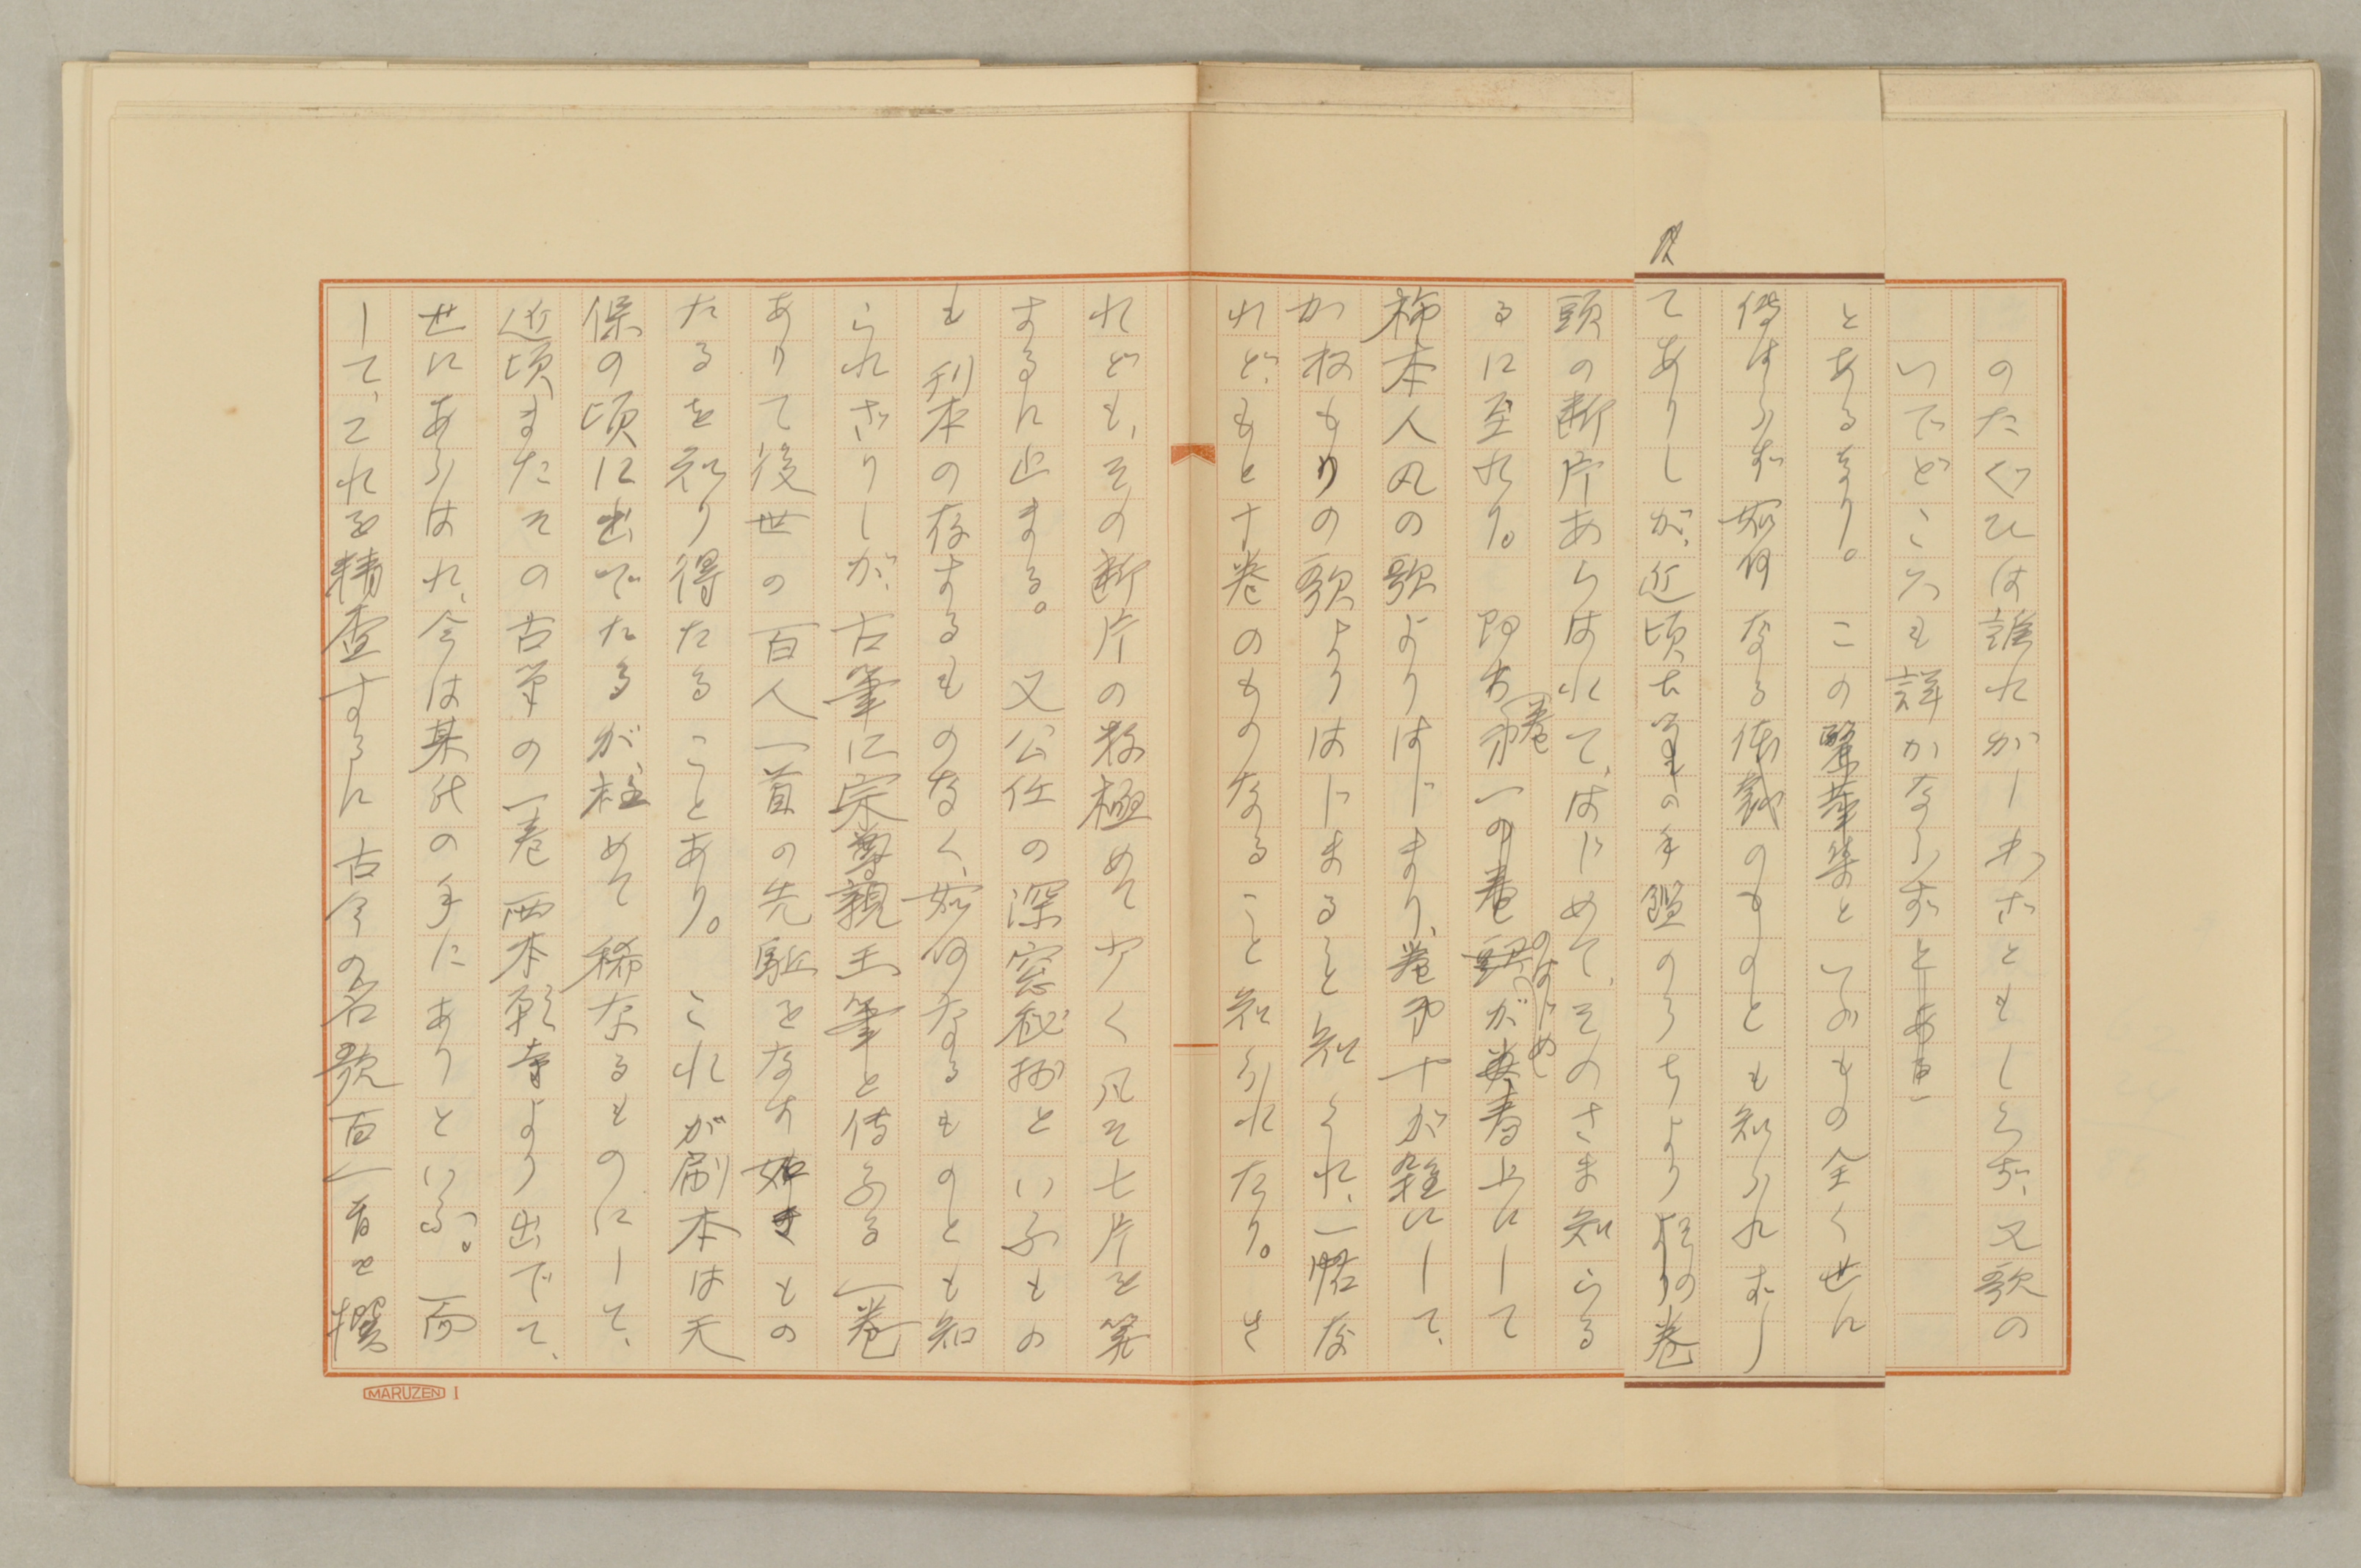 のたぐひは誰れがしわざともしらず、又歌の
いでどころも詳かならずとあ
とあるなり。この麗華集といふもの全くせに
傳はらず如何なる体裁のものとも知られずし
てありしが、近頃古筆の手鑑のうちよりの巻
頭の断片あらはれて、はじめて、そのさま知らる
るに至れり。即ち巻第一のはじめが春上にして
柿本人丸の歌よりはじまり、巻第十が雑にして、
かねもりの歌よりはじまること知られ、一帖な
れど、もと十巻のものなること知られたり。さ
れども、その断片の数極めて少く凡そ七片を算
するに止まる。又公任の深窓秘抄といふもの
も刊本の存するものなく、如何なるものとも知
られざりしが、古筆に宗尊親王筆と傳ふる一巻
ありて後世の百人一首の先駈をなすもの
たるを知り得たることあり。これが刷本は天
保の頃に出でたるが、極めて稀なるものにして、
近頃またその古筆の一巻西本願寺より出でて、
世にあらはれ、今は某氏の手にありといふ。而
して、これを精査するに古今の名歌百一首を撰
MARUZEN 1